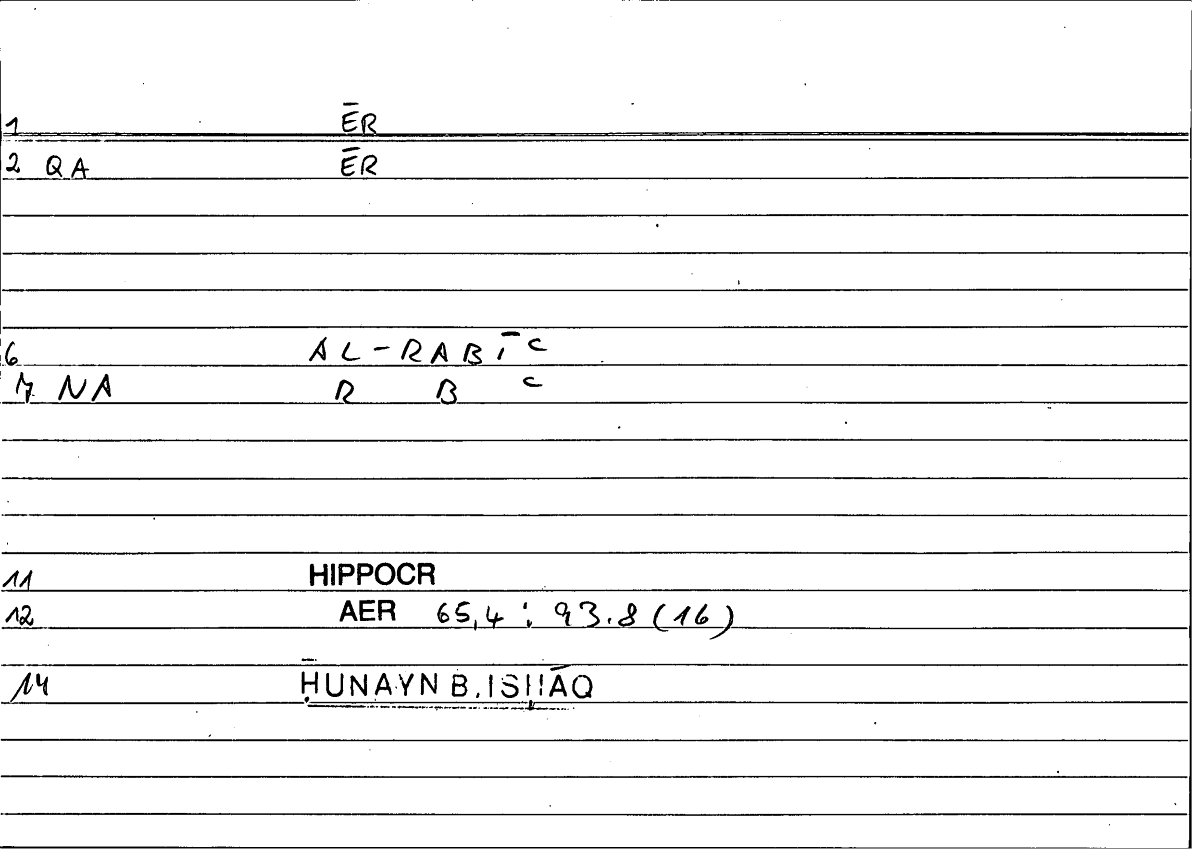 1 ĒR
2 QA ĒR
6 AL-RABĪʿ
7 NA R B ʿ
11 HIPPOCR
12 AER 65,4 : 93.8 (16)
14 ḤUNAYN B. ISḤĀQ